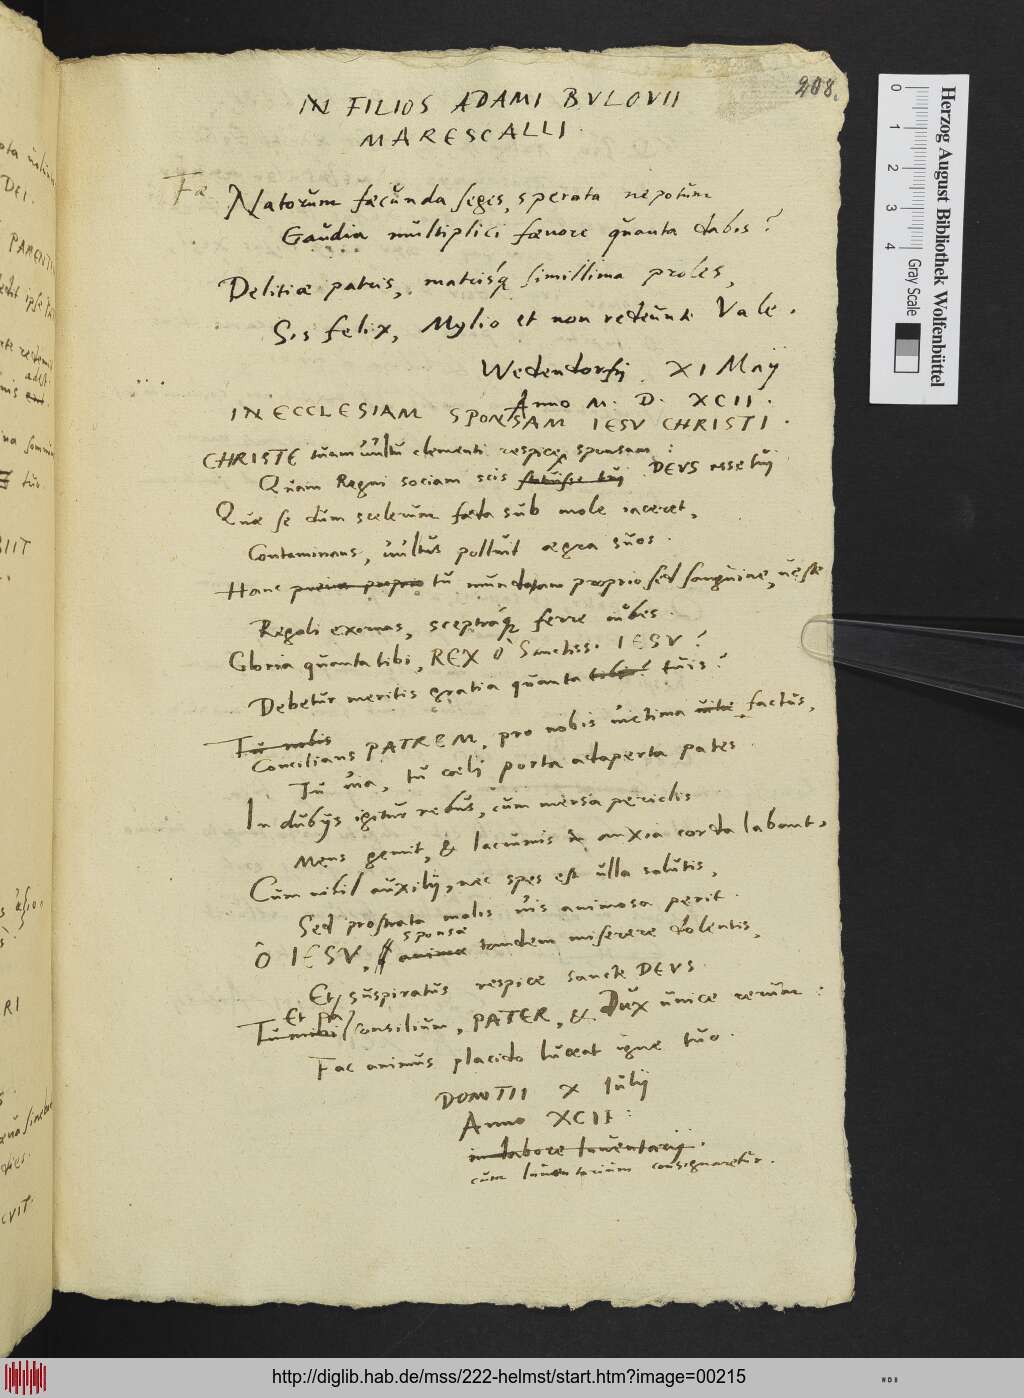 208.
IN FILIOS ADAMI BVLOVII
MARESCALLI.
Fæ
Natorum fæcunda seges, sperata nepotum
Gaudia multiplici fœnore quanta dabis?
Delitiæ patris, matrisq simillima proles,
Sis felix, Mylio et non redeunti Vale.
Wedendorfij. XI Maij
Anno M. D. XCII.
IN ECCLESIAM SPONSAM IESV CHRISTI.
CHRISTE tuam vultu clementi respice sponsam:
Quam Regni sociam scis statuisse tui DEVS esse tui
Quæ se dum scelerum fæda sub mole iaceret,
Contaminans, vultus polluit ægra suos.
Hanc tu mundatam proprio sed sanguine, ueste
Regali exornas, sceptraq ferre iubes.
Gloria quanta tibi, REX ô Sanctiss. IESV?
Debetur meritis gratia quanta tibi? tuis?
Tu nobis
Concilians PATREM, pro nobis victima factus,
Tu via, tu cœli porta adaperta pates.
In dubijs igitur rebus, cum mersa periclis
Mens gemit, & lacrumis anxia corda labant,
Cum nihil auxilij, nec spes est ulla salutis,
Sed prostrata malis vis animosa perit.
sponsæ
Ô IESV, animæ tandem miserere dolentis,
Et suspiratus respice sancte DEVS.
Et
Tu mihi consilium, PATER, & Dux unice rerum:
Fac animus placido luceat igne tuo.
DOMITII X Iulij
Anno XCII:
in labore Inventarij.
cum Inventarium consignaretur.
Herzog August Bibliothek Wolfenbüttel
0 1 2 3 4 Gray Scale
http://diglib.hab.de/mss/222-helmst/start.htm?image=00215